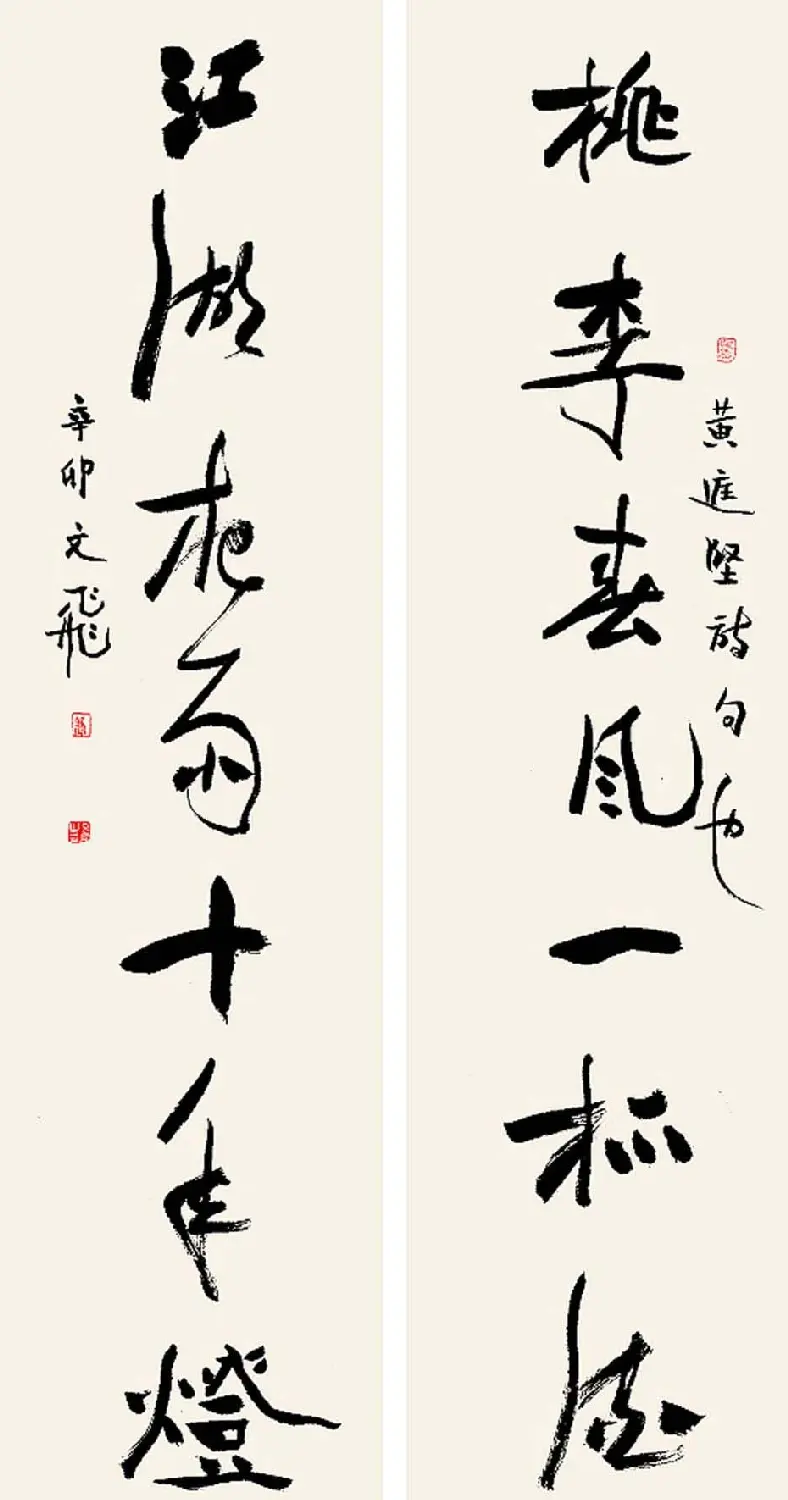 桃李春风一杯酒
黄庭坚诗句也
江湖夜雨十年燈
辛卯文飛